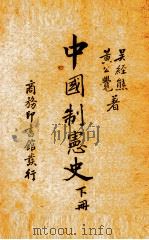 吳經熊
黃公覺 著
中國制憲史 下冊
商務印書館發行
mtoou.info